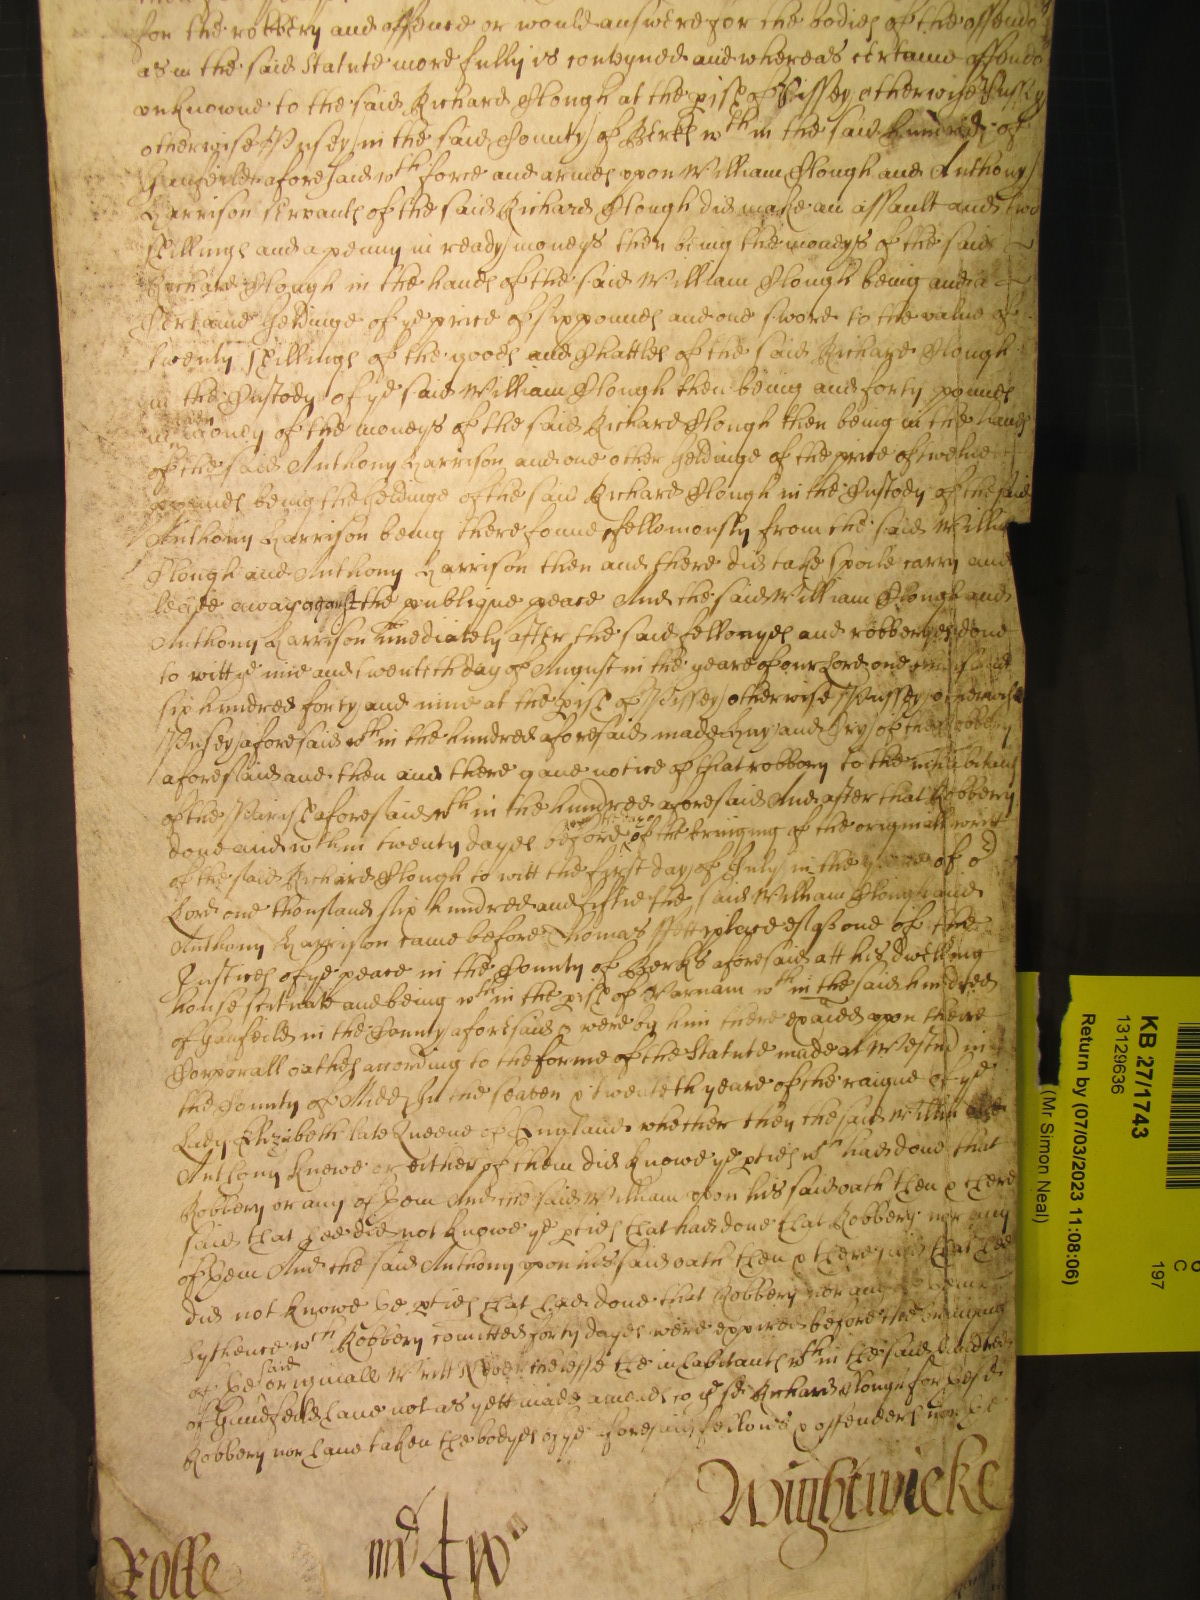 for the robbery and offence or would answere for the bodies of the offendo
as in the said Statute more fully is conteyned and whereas certaine offendo
unknowne to the said Richard Clough at the pish of Pissey otherwise Pussey
otherwise Pusey in the said County of Berks wth in the said hundred of
Ganfeild aforesaid wth force and armes upon William Clough and Anthony
Harrison servants of the said Richard Clough did make an assault and two
shillings and a penny in ready moneys then being the moneys of the said
Richard Clough in the hands of the said William Clough being and a
Certaine Geldinge of ye price of six pounds and one sword to the value of
twenty shillings of the goods and Chattles of the said Richard Clough
in the Custody of ye said William Clough then being and forty pounds
in money of the moneys of the said Richard Clough then being in the hands
of the said Anthony Harrison and one other Geldinge of the price of twelve
pounds being the Geldinge of the said Richard Clough in the Custody of the said
Anthony Harrison being there founde fellonously from the said Willia
Clough and Anthony Harrison then and there did take spoile carry and
leade away against the publique peace And the said William Clough and
Anthony Harrison imediately after the said fellonyes and robberyes done
to witt ye nine and twentith day of August in the yeare of our Lord one thousand
six hundred forty and nine at the pish of Pissey otherwise Pussey otherwise
Pusey aforesaid wth in the hundred aforesaid made Huy and Cry of the Robbery
aforesaid and then and there gave notice of that robbery to the inhabitants
of the Parish aforesaid wth in the hundred aforesaid And after that Robbery
done and wthin twenty dayes before of the bringing of the originall writt
of the said Richard Clough to witt the first day of July in the yeare of or
Lord one thousand six hundred and fiftie the said William Clough and
Anthony Harrison came before Thomas Fettiplace esqr one of the
Justices of ye peace in the County of Berks aforesaid att his dwelling
house scituate and being wth in the pish of Varnam wth in the said hundred
of Ganfeild in the County aforesaid & were by him there exaied upon there
Corporall oathes according to the forme of the Statute made at Westmr in
the County of Midd In the seaven & twenteth yeare of the raigne of ye
Lady Elizabeth late Queene of England whether they the said William and
Anthony knewe or either of them did knowe ye pties wch had done that
Robbery or any of them And the said William upon his said oath then & there
said that hee did not knowe ye pties that had done that Robbery nor any
of them And the said Anthony upon his said oath then & there said that hee
did not knowe the pties that had done that Robbery nor any of them
Sythence wch Robbery comitted forty dayes were expired before the bringing
of the said originall Writt Neverthelesse the inhabitants wth in the said hundred
of Gandfeild have not as yett made amends to ye sd Richard Clough for the sd
Robbery nor have taken the bodyes of ye foresaid fellons & offenders nor the
Wightwicke
Rolfe
KB 27/1743
13129636
Return by (07/03/2023 11:08:06)
(Mr Simon Neal)
C
197